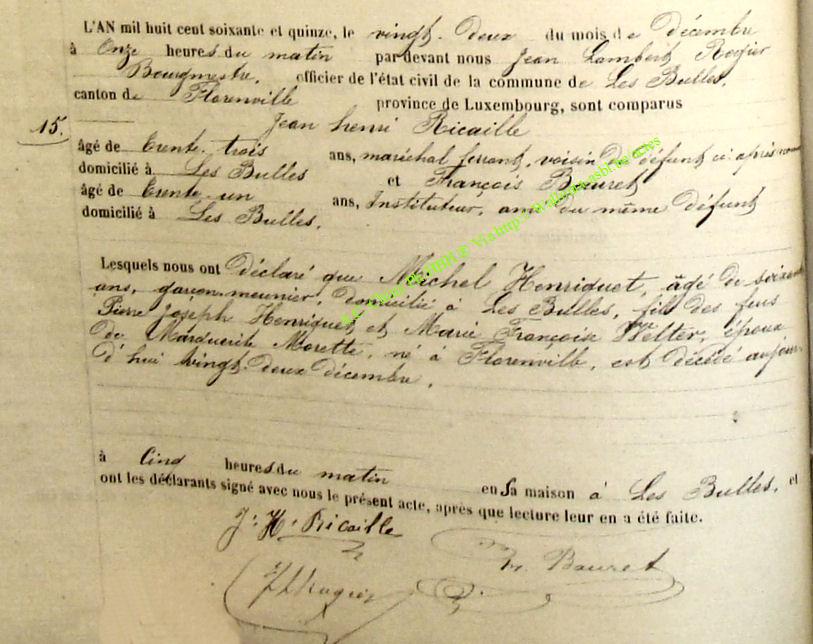 L'AN mil huit cent soixante et quinze, le vingt-deux du mois de Décembre
à Onze heures du matin par-devant nous Jean Lambert Rogier
Bourgmestre, officier de l'état civil de la commune de Les Bulles,
canton de Florenville province de Luxembourg, sont comparus
15. Jean henri Ricaille
âgé de trente-trois ans, maréchal ferrant, voisin du défunt ci après
domicilié à Les Bulles et François Bauret
âgé de trente un ans, Instituteur, ami du même défunt
domicilié à Les Bulles.
Lesquels nous ont Déclaré que Michel Henriquet, âgé de
ans, garçon meunier, domicilié à Les Bulles, fils des feus
Pierre Joseph Henriquet, et Marie Françoise Welter, époux
de Marguerite Morette, né à Florenville, est décédé aujour-
d'hui vingt-deux décembre,
à Cinq heures du matin en Sa maison à Les Bulles, et
ont les déclarants signé avec nous le présent acte, après que lecture leur en a été faite.
J. H. Ricaille
Bauret